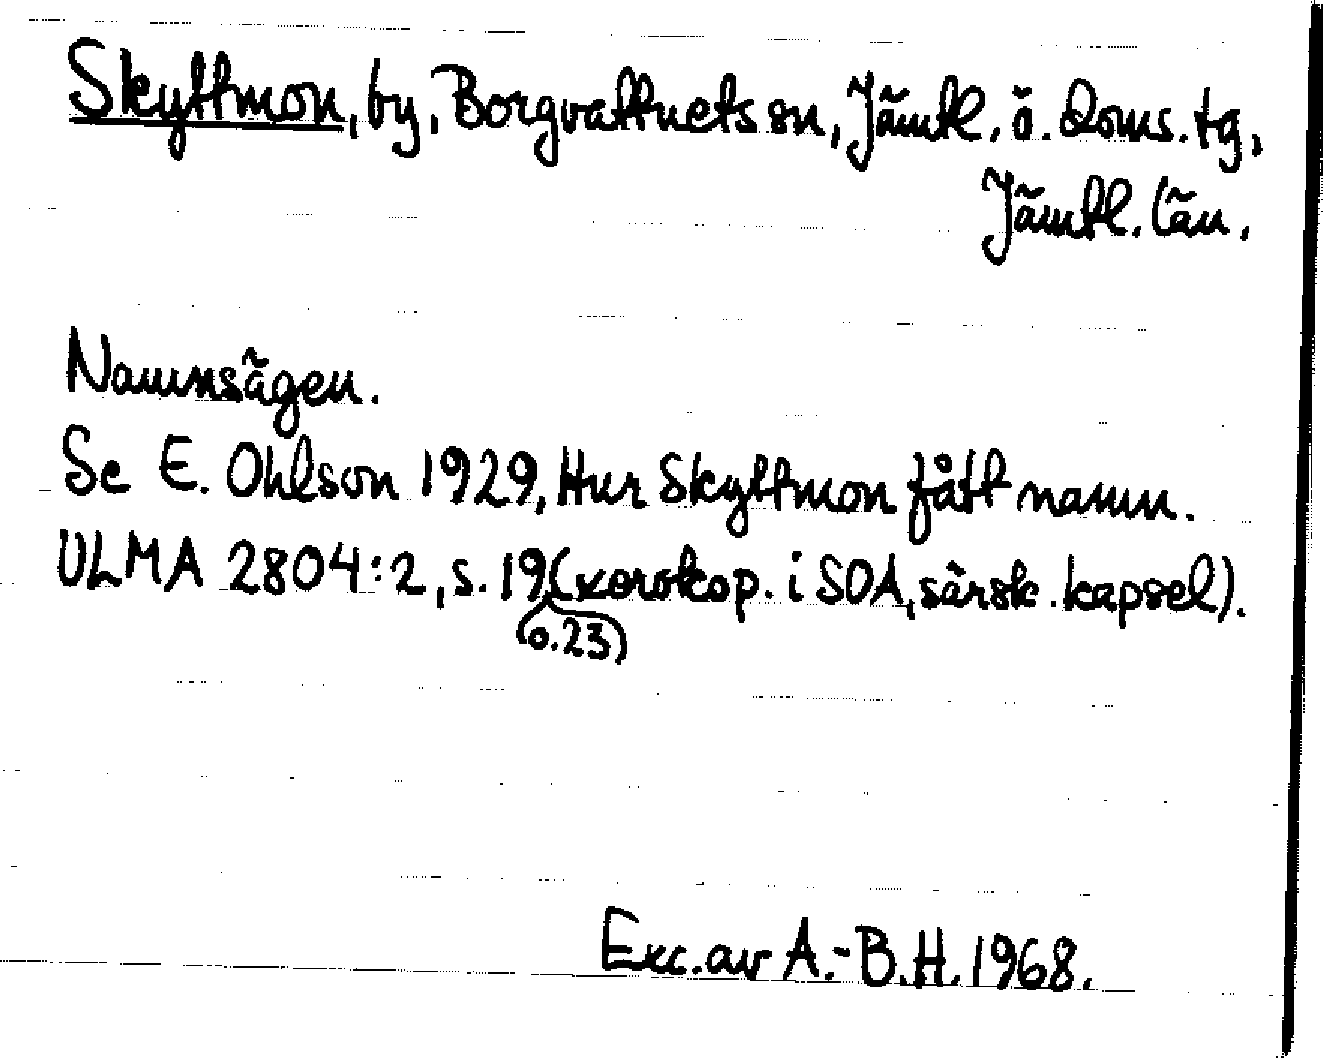 Skyttmon, by, Borgvattnets sn, Jämtl. ö. doms. tg,
Jämtl. län.
Namnsägen.
Se E. Ohlson 1929, Hur Skyttmon fått namn.
ULMA 2804:2, s. 19 (xerokop. i SOA, särsk. kapsel).
o. 23
Exc. av A.-B.H. 1968.